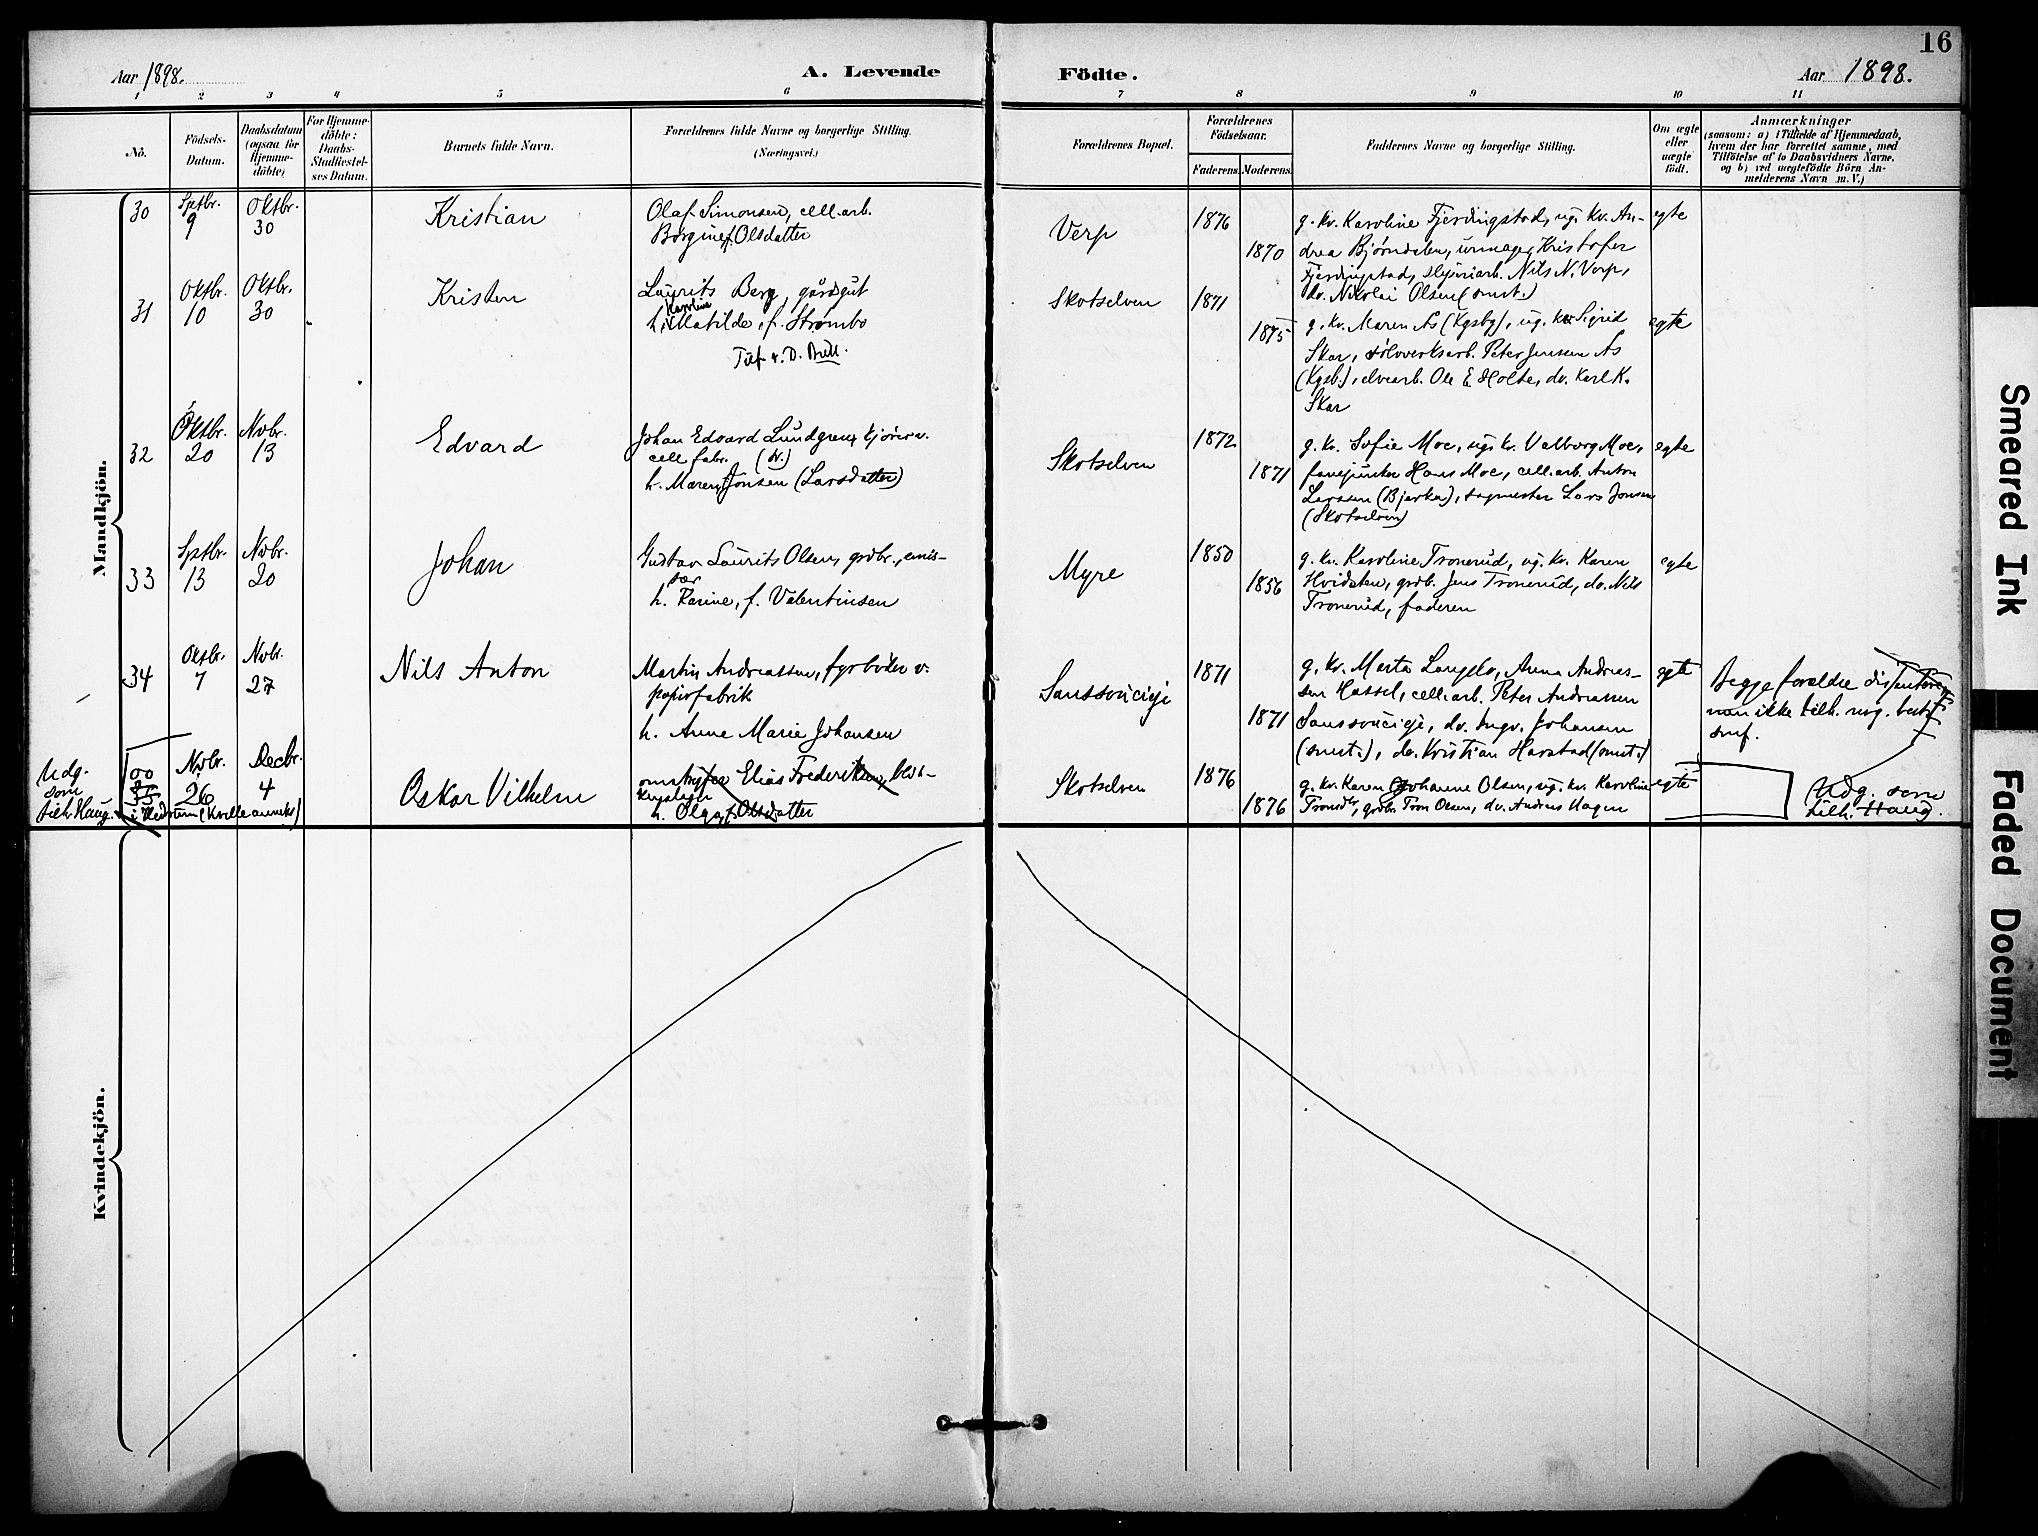 16
Aar 1898.
A. Levende Födte.
Aar 1898.
1 2 3 4 5 6 7 8 9 10 11
No.
Födsels-
Datum.
Daabsdatum
(ogsaa for
Hjemme-
döbte)
For Hjemme-
döbte:
Daabs-
Stadfæstel-
ses Datum.
Barnets fulde Navn.
Forældrenes fulde Navne og borgerlige Stilling.
(Næringsvei.)
Forældrenes Bopæl.
Forældrenes
Födselsaar.
Faderens. Moderens.
Faddernes Navne og borgerlige Stilling.
Om ægte
eller
uægte
födt.
Anmærkninger
(saasom: a) i Tilfælde af Hjemmedaab,
hvem der har forrettet samme, med
Tilföielse af to Daabsvidners Navne.
og b) ved uægtefödte Börn An-
melderens Navn m. V.)
Mandkjön.
30
Sptbr.
9
Oktbr.
30
Kristian
Olaf Simonsen, cell.arb.
Borgine f. Olsdatter
Verp
1876
1870
g. kv. Karoline Fjerdingstad, ug. kv. An-
drea Bjørndalen, urmager Kristofer
Fjerdingstad, Nils N. Verp,
dv. Nikolai Olsen (smst.)
egte
31
Oktbr.
10
Oktbr.
30
Kristen
Laurits Berg, gårdgut
Karolin
h. Matilde, f. Strømbo
Tilf. v. D. Bull.
Skotselven
1871
1875
g. kv. Maren Ås (Kgsbg), ug. kv. Sigrid
Skar, sølvverksarb. Peter Jensen Ås
(Kgsb.), elvearb. Ole E Holte, dv. Karl K.
Skar
egte
32
Oktbr.
20
Novbr.
13
Edvard
Johan Edvard Lundgren, kjører v.
cell fabr.
h. Maren Jonsen (Larsdatter)
Skotselven
1872
1871
g. kv. Sofie Moe, ug. kv. Valborg Moe,
fanejunker Hans Moe, cell.arb. Anton
Larssen (Bjerka), sagmester Lars Jonsen
(Skotselven)
egte
33
Sptbr.
13
Novbr.
20
Johan
Gustav Laurits Olsen, grdbr., emis-
sær
h. Karine, f. Valentinsen
Myre
1850
1856
g. kv. Karoline Tronerud, ug. kv. Karen
Hvidsten, grdb. Jens Tronerud, dv. Nils
Tronerud, faderen
egte
34
Oktbr.
7
Novbr.
27
Nils Anton
Martin Andreassen, fyrbøder v.
papirfabrik
h. Anne Marie Johansen
Sanssoucieje
1871
1871
g. kv. Marta Langelv, Anna Andreas-
sen Hassel, cell.arb. Peter Andreassen
Sanssoucieje, dv. Ingv. Johansen
(smst.), dv. Kristian Harstad (smst.)
egte
Begge forældre dissentere
men ikke tilh. nog. best.
smf.
Udg.
som
tilh. Haug.
35
Nvbr.
26
Decbr.
4
Oskar Vilhelm
Elias Frederiksen,
h. Olga f. Olsdatter
Skotselven
1876
1876
g. kv. Karen Johanne Olsen, ug. kv. Karoline
grdb. Tron Olsen, dv. Andreas Hagen
egte
Udg. som
tilh. Haug.
Kvindekjön.
Smeared Ink
Faded Document